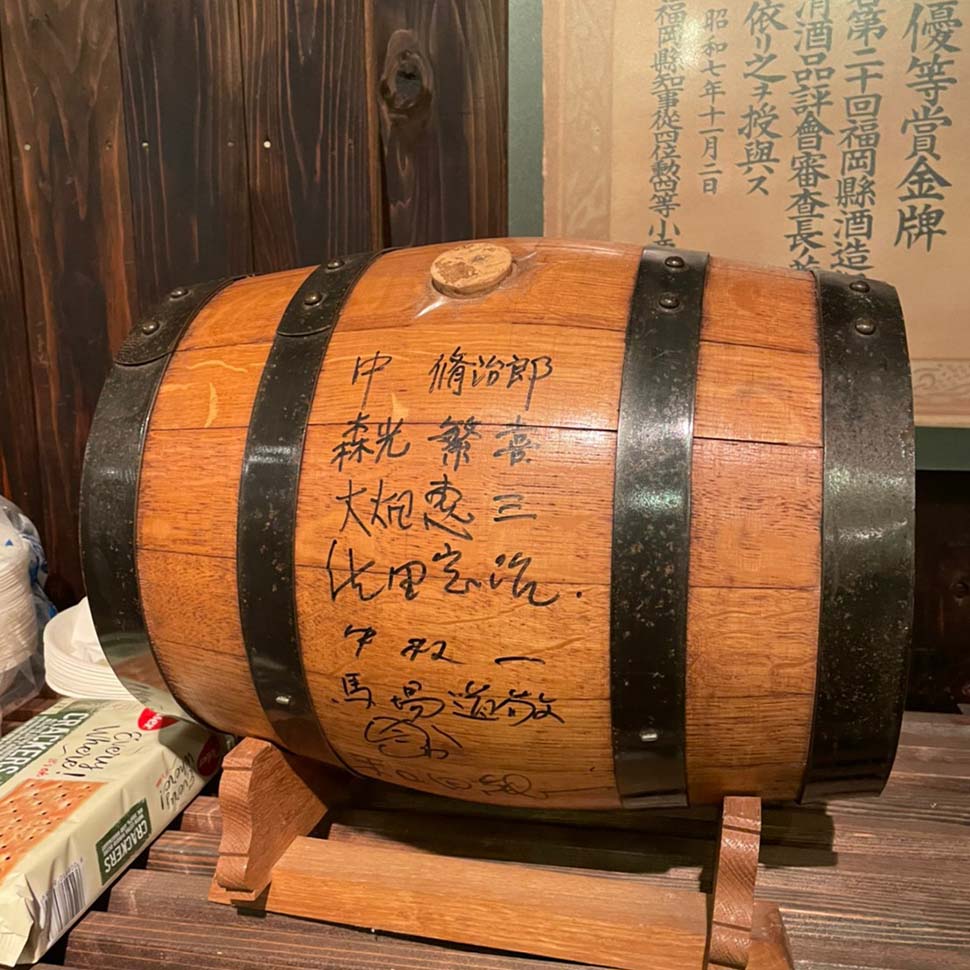 優等賞金牌
第二十回福岡縣酒造
清酒品評會審査長
依リ之ヲ授與ス
昭和七年十一月二日
福岡縣知事從四位勳四等小
中 脩治郎
森光 繁喜
大炮恵三
佐里宏治.
中叔一
馬場道敬
Every
Where!
CRACKERS
Every
Where!
CRACKERS